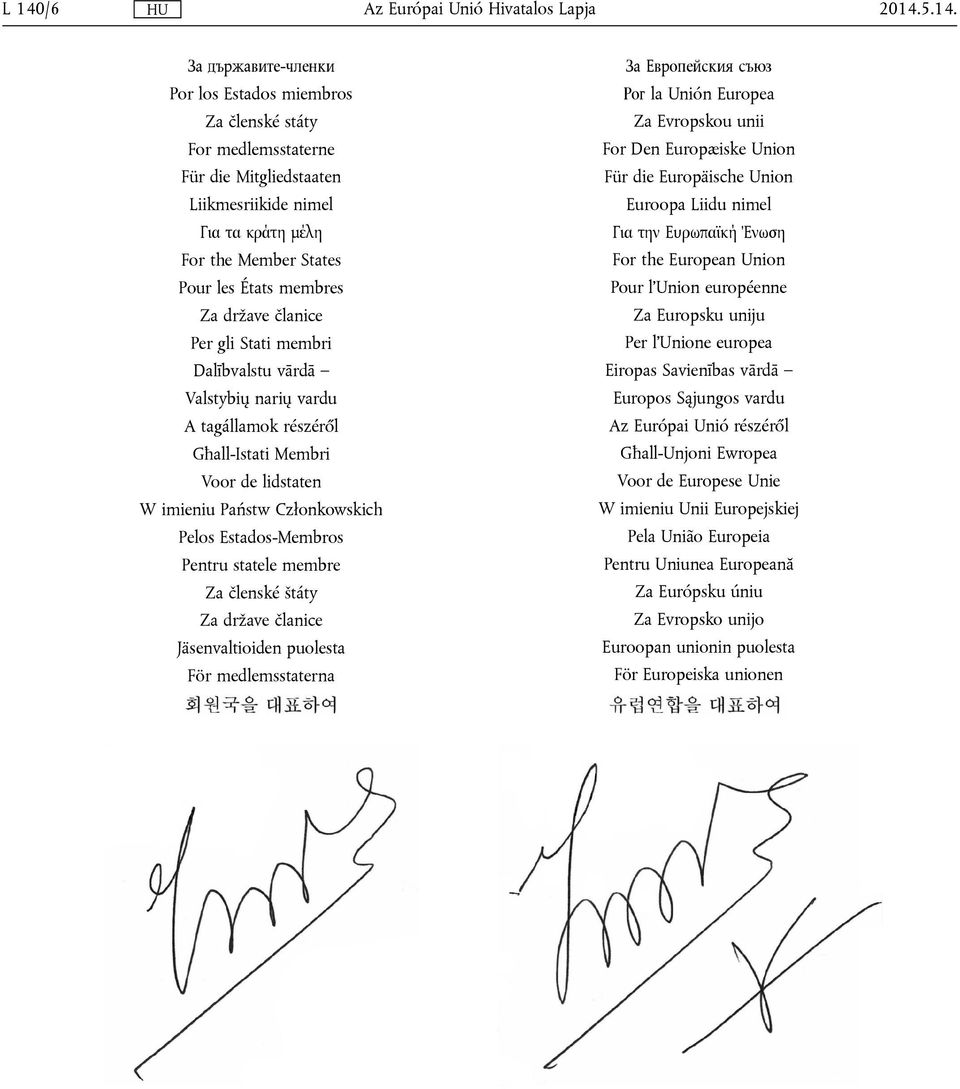 L 140/6 HU Az Európai Unió Hivatalos Lapja 2014.5.14.
За държавите-членки
Por los Estados miembros
Za členské státy
For medlemsstaterne
Für die Mitgliedstaaten
Liikmesriikide nimel
Για τα κράτη μέλη
For the Member States
Pour les États membres
Za države članice
Per gli Stati membri
Dalībvalstu vārdā –
Valstybių narių vardu
A tagállamok részéről
Għall-Istati Membri
Voor de lidstaten
W imieniu Państw Członkowskich
Pelos Estados-Membros
Pentru statele membre
Za členské štáty
Za države članice
Jäsenvaltioiden puolesta
För medlemsstaterna
회원국을 대표하여
За Европейския съюз
Por la Unión Europea
Za Evropskou unii
For Den Europæiske Union
Für die Europäische Union
Euroopa Liidu nimel
Για την Ευρωπαϊκή Ένωση
For the European Union
Pour l'Union européenne
Za Europsku uniju
Per l'Unione europea
Eiropas Savienības vārdā –
Europos Sąjungos vardu
Az Európai Unió részéről
Għall-Unjoni Ewropea
Voor de Europese Unie
W imieniu Unii Europejskiej
Pela União Europeia
Pentru Uniunea Europeană
Za Európsku úniu
Za Evropsko unijo
Euroopan unionin puolesta
För Europeiska unionen
유럽연합을 대표하여